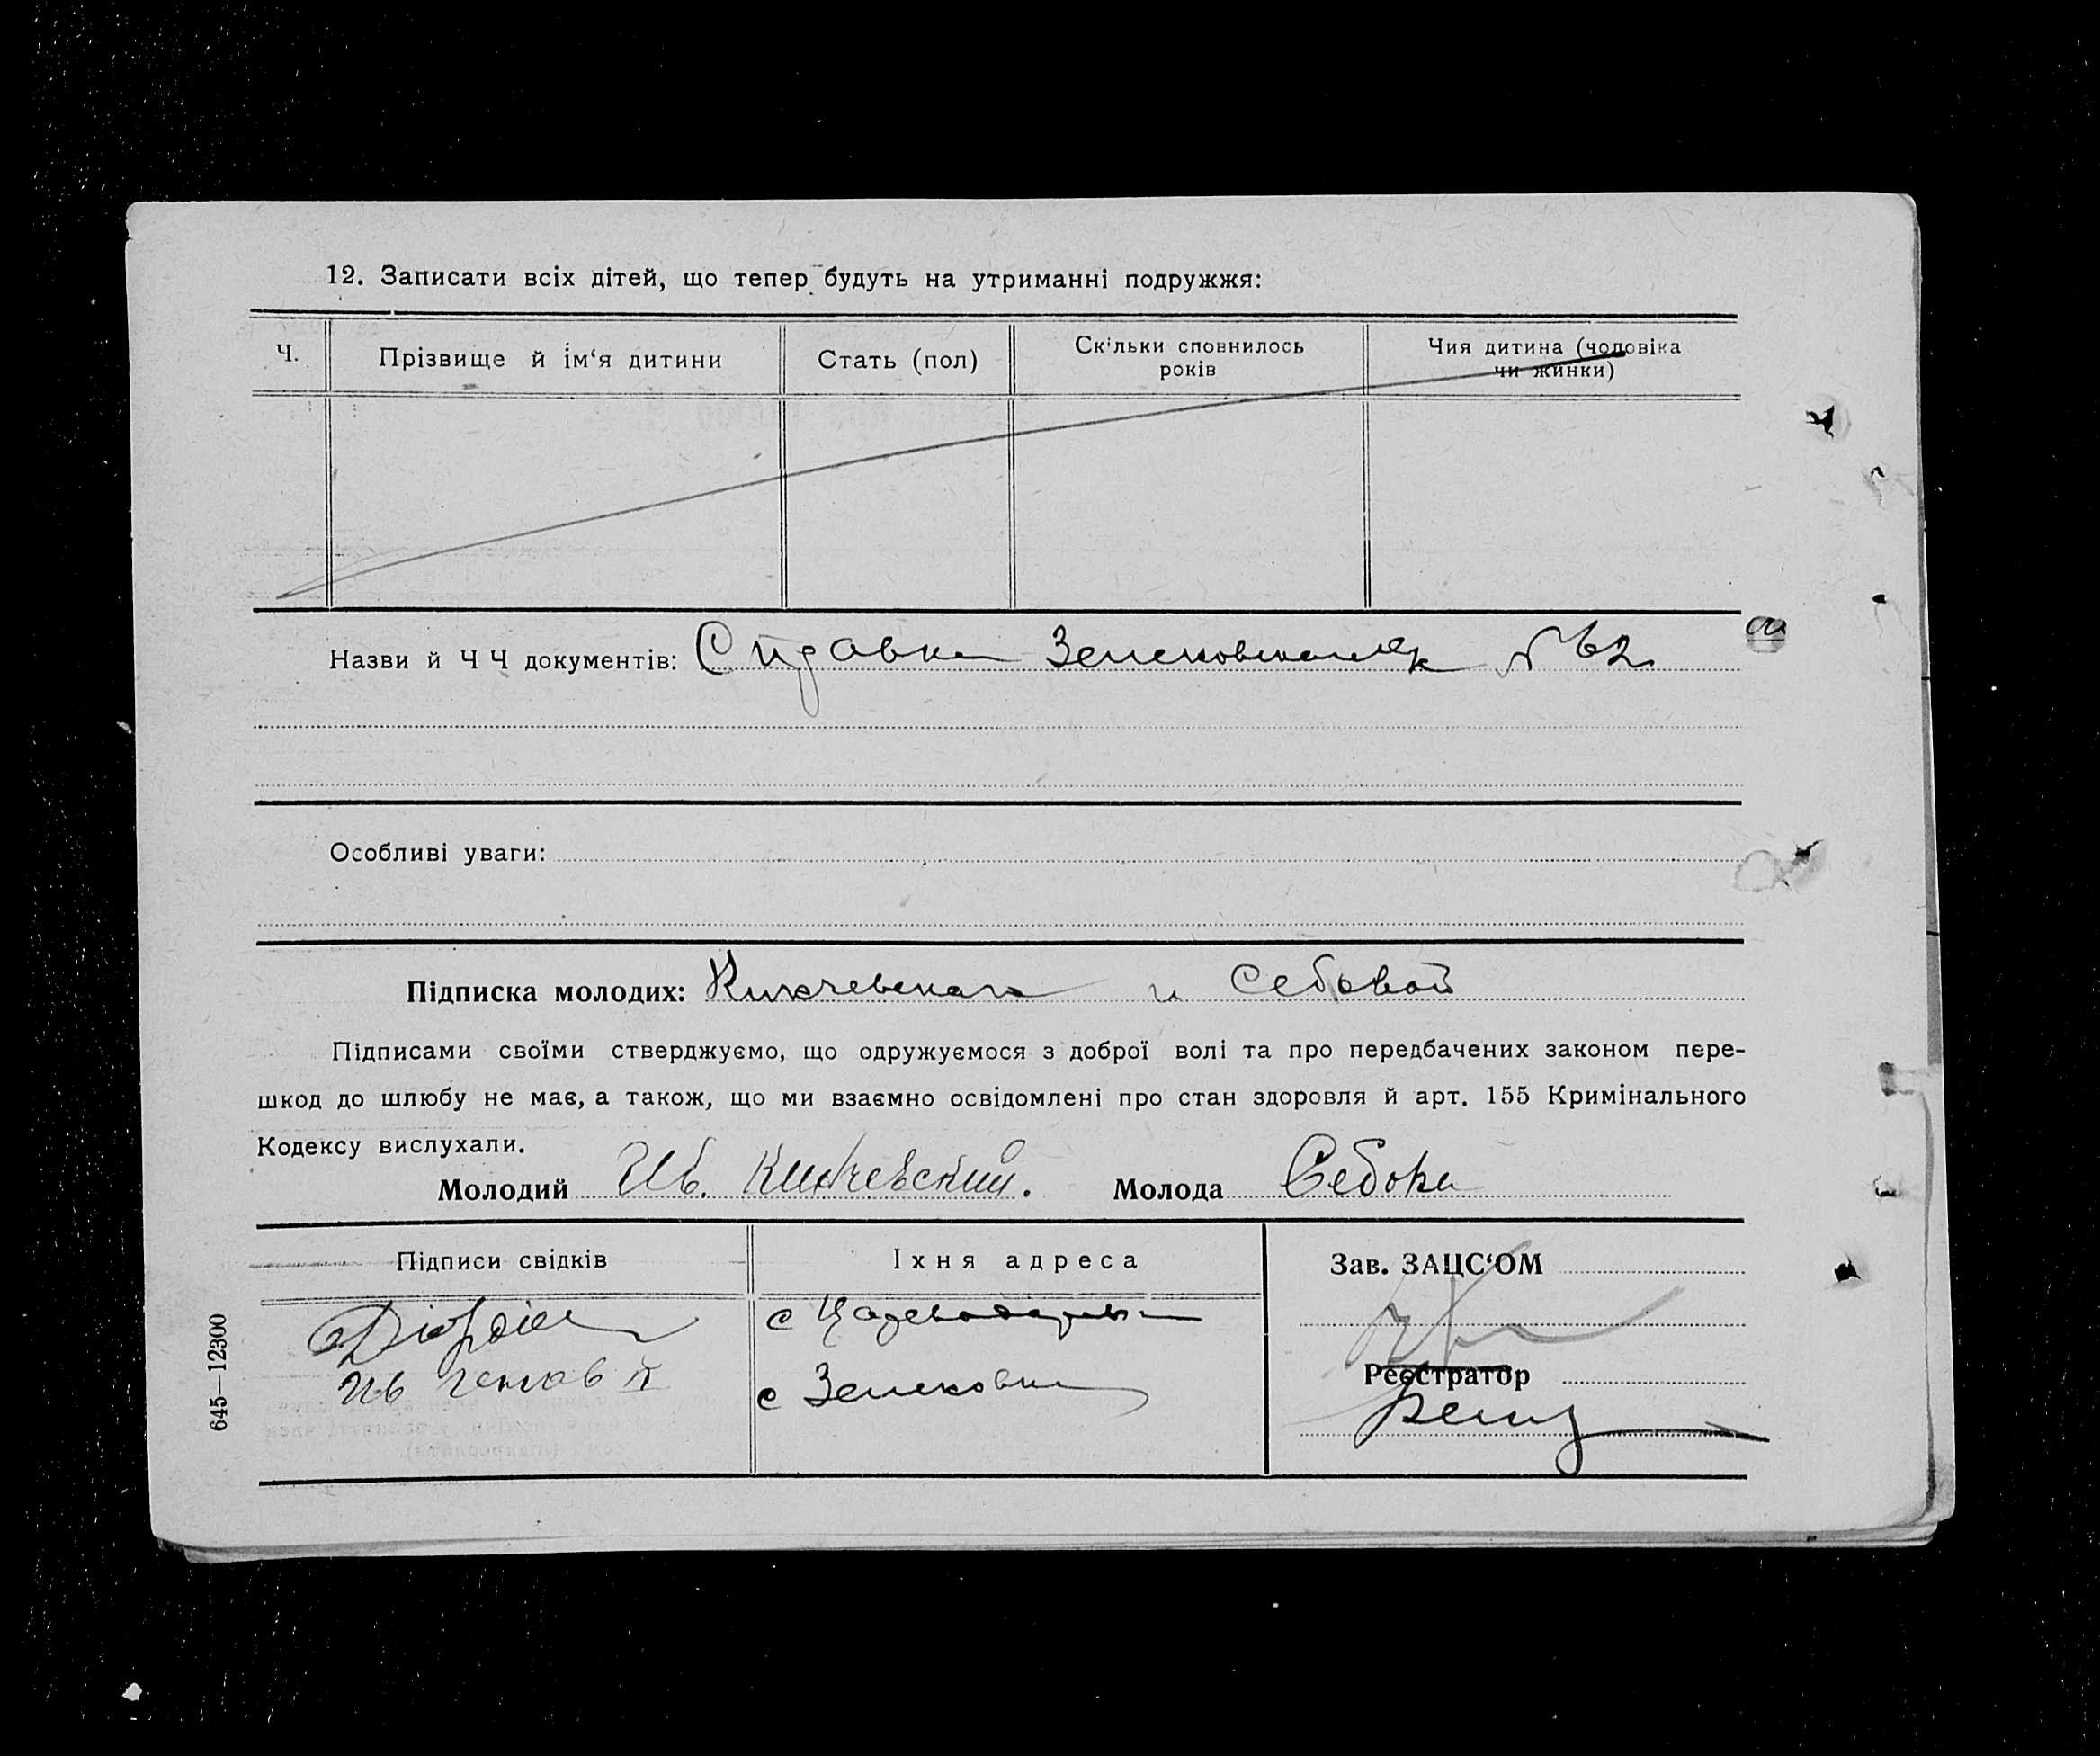 12. Записати всіх дітей, що тепер будуть на утриманні подружжя:
Ч.
Прізвище й ім‘я дитини
Стать (пол)
Скільки сповнилось
років
Чия дитина (чоловіка
чи жинки)
Назви й Ч Ч документів: Справка №62
Особливі уваги:
Підписка молодих: и Седовой
Підписами своїми стверджуємо, що одружуємося з доброї волі та про передбачених законом пере-
шкод до шлюбу не має, а також, що ми взаємно освідомлені про стан здоровля й арт. 155 Кримінального
Кодексу вислухали.
Молодий Ив. Молода
Підписи свідків
Іхня адреса
Зав. ЗАЦС‘ОМ
с
Ив
с
Реєстратор
645—12300